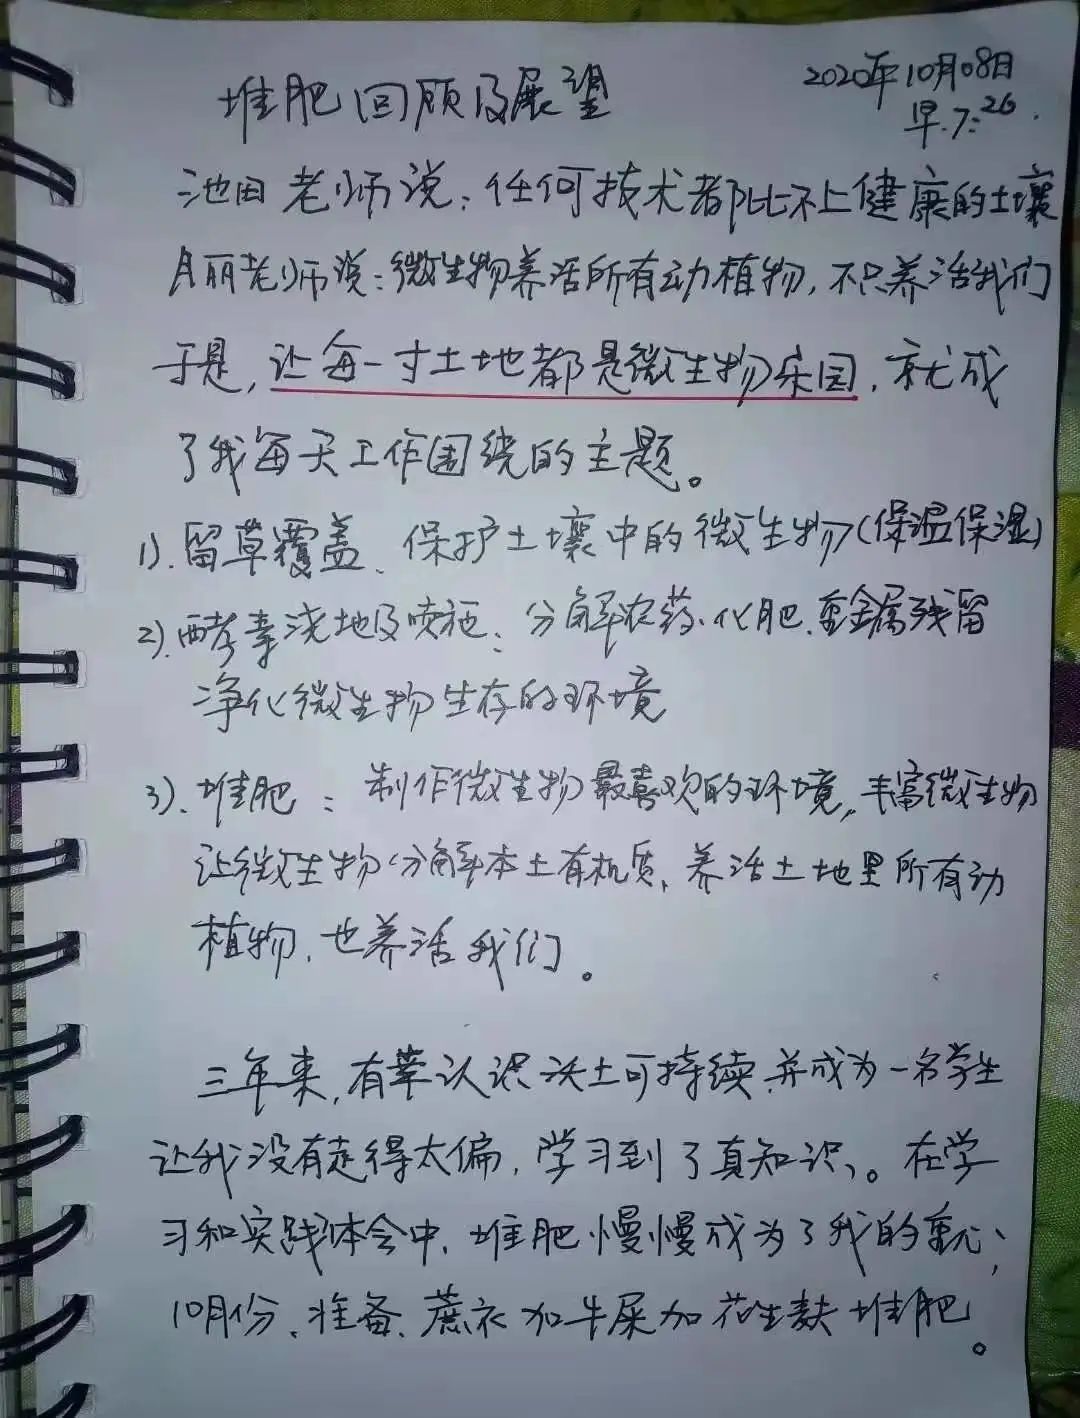 堆肥回顾及展望
2020年10月08日
早.7:26.
池田老师说:任何技术都比不上健康的土壤
月丽老师说:微生物养活所有动植物,不只养活我们
于是,让每一寸土地都是微生物乐园,就成
了我每天工作围绕的主题。
1).留草覆盖、保护土壤中的微生物(保温保湿)
2).酵素浇地及喷施:分解农药、化肥、重金属残留
净化微生物生存的环境
3).堆肥:制作微生物最喜欢的环境,丰富微生物
让微生物分解本土有机质,养活土地里所有动
植物,也养活我们。
三年来,有幸认识沃土可持续,并成为一名学生
让我没有走得太偏,学习到了真知识。在学
习和实践体会中,堆肥慢慢成为了我的重心,
10月份、准备、蔗衣加牛屎加花生麸堆肥。